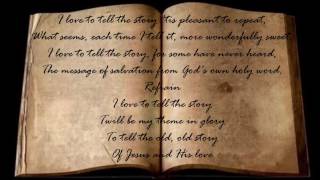 I love to tell the story 'tis pleasant to repeat,
What seems, each time I tell it, more wonderfully sweet
I love to tell the story, for some have never heard,
The message of salvation from God's own holy word,
Refrain
I love to tell the story
Twill be my theme in glory
To tell the old, old story
Of Jesus and His love